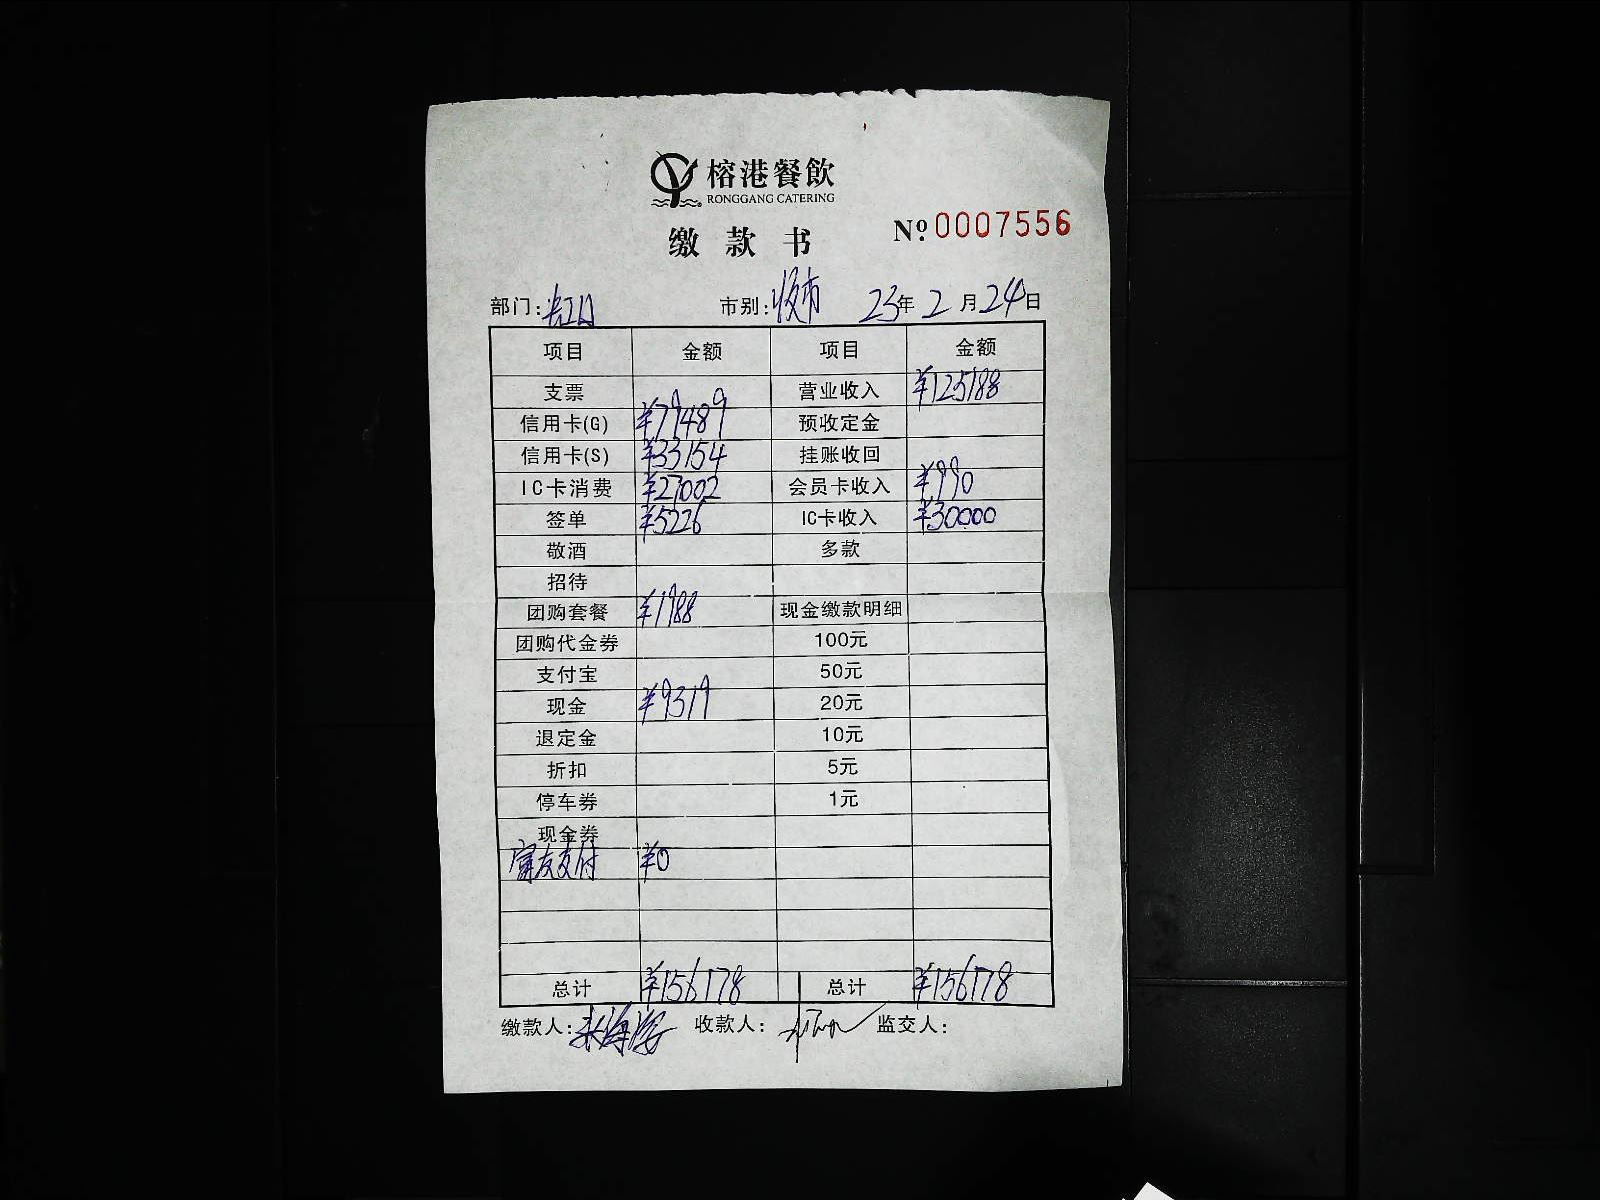 榕港餐飲
RONGGANG CATERING
缴款书
№ 0007556
部门: 市别: 23年2月24日
项目 金额 项目 金额
支票 营业收入 ¥125188
信用卡(G) ¥79489 预收定金
信用卡(S) ¥33154 挂账收回
IC卡消费 ¥27002 会员卡收入 ¥990
签单 ¥5226 IC卡收入 ¥30000
敬酒 多款
招待
团购套餐 ¥1988 现金缴款明细
团购代金券 100元
支付宝 50元
现金 ¥9319 20元
退定金 10元
折扣 5元
停车券 1元
现金券
富友支付 ¥0
总计 ¥156178 总计 ¥156178
缴款人: 收款人: 监交人: